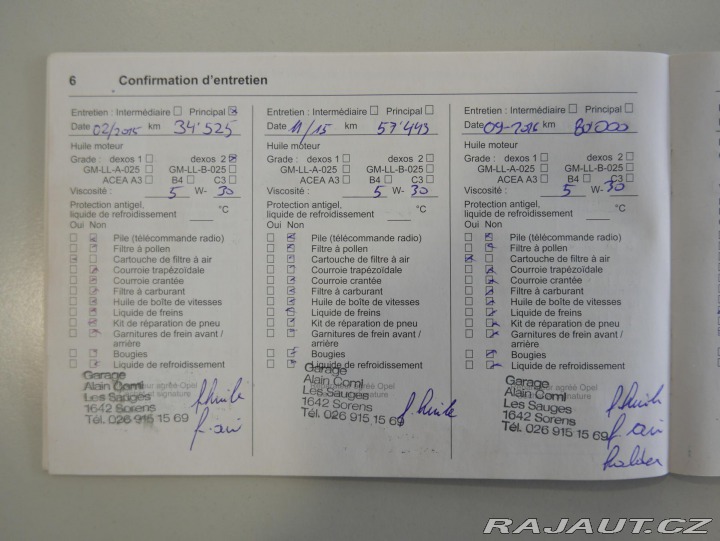 6 Confirmation d'entretien
Entretien : Intermédiaire Principal
Date 02/2015 km 34'525
Huile moteur
Grade : dexos 1 dexos 2
GM-LL-A-025 GM-LL-B-025
ACEA A3 B4 C3
Viscosité : 5 W- 30
Protection antigel,
liquide de refroidissement °C
Oui Non
Pile (télécommande radio)
Filtre à pollen
Cartouche de filtre à air
Courroie trapézoïdale
Courroie crantée
Filtre à carburant
Huile de boîte de vitesses
Liquide de freins
Kit de réparation de pneu
Garnitures de frein avant /
arrière
Bougies
Liquide de refroidissement
Garage
Alain Comi
Les Sauges
1642 Sorens
Tél. 026 915 15 69
agréé Opel
signature
f. huile
f. air
Entretien : Intermédiaire Principal
Date 11/15 km 57'443
Huile moteur
Grade : dexos 1 dexos 2
GM-LL-A-025 GM-LL-B-025
ACEA A3 B4 C3
Viscosité : 5 W- 30
Protection antigel,
liquide de refroidissement °C
Oui Non
Pile (télécommande radio)
Filtre à pollen
Cartouche de filtre à air
Courroie trapézoïdale
Courroie crantée
Filtre à carburant
Huile de boîte de vitesses
Liquide de freins
Kit de réparation de pneu
Garnitures de frein avant /
arrière
Bougies
Liquide de refroidissement
Garage
Alain Comi
Les Sauges
1642 Sorens
Tél. 026 915 15 69
agréé Opel
signature
f. huile
Entretien : Intermédiaire Principal
Date 09-2016 km 80'000
Huile moteur
Grade : dexos 1 dexos 2
GM-LL-A-025 GM-LL-B-025
ACEA A3 B4 C3
Viscosité : 5 W- 30
Protection antigel,
liquide de refroidissement °C
Oui Non
Pile (télécommande radio)
Filtre à pollen
Cartouche de filtre à air
Courroie trapézoïdale
Courroie crantée
Filtre à carburant
Huile de boîte de vitesses
Liquide de freins
Kit de réparation de pneu
Garnitures de frein avant /
arrière
Bougies
Liquide de refroidissement
Garage
Alain Comi
Les Sauges
1642 Sorens
Tél. 026 915 15 69
agréé Opel
signature
f. huile
f. air
RAJAUT.CZ